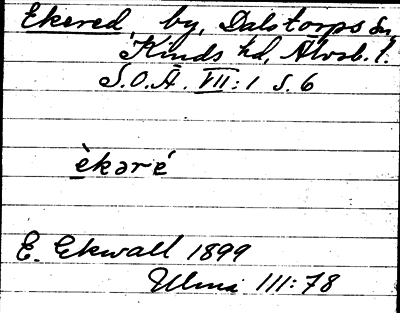 Ekered, by, Dalstorps sn,
Kinds hd, Älvsb. l.
S.O.Ä. VII:1 S. 6
èkəré
E. Ekwall 1899
Ulma 111:78